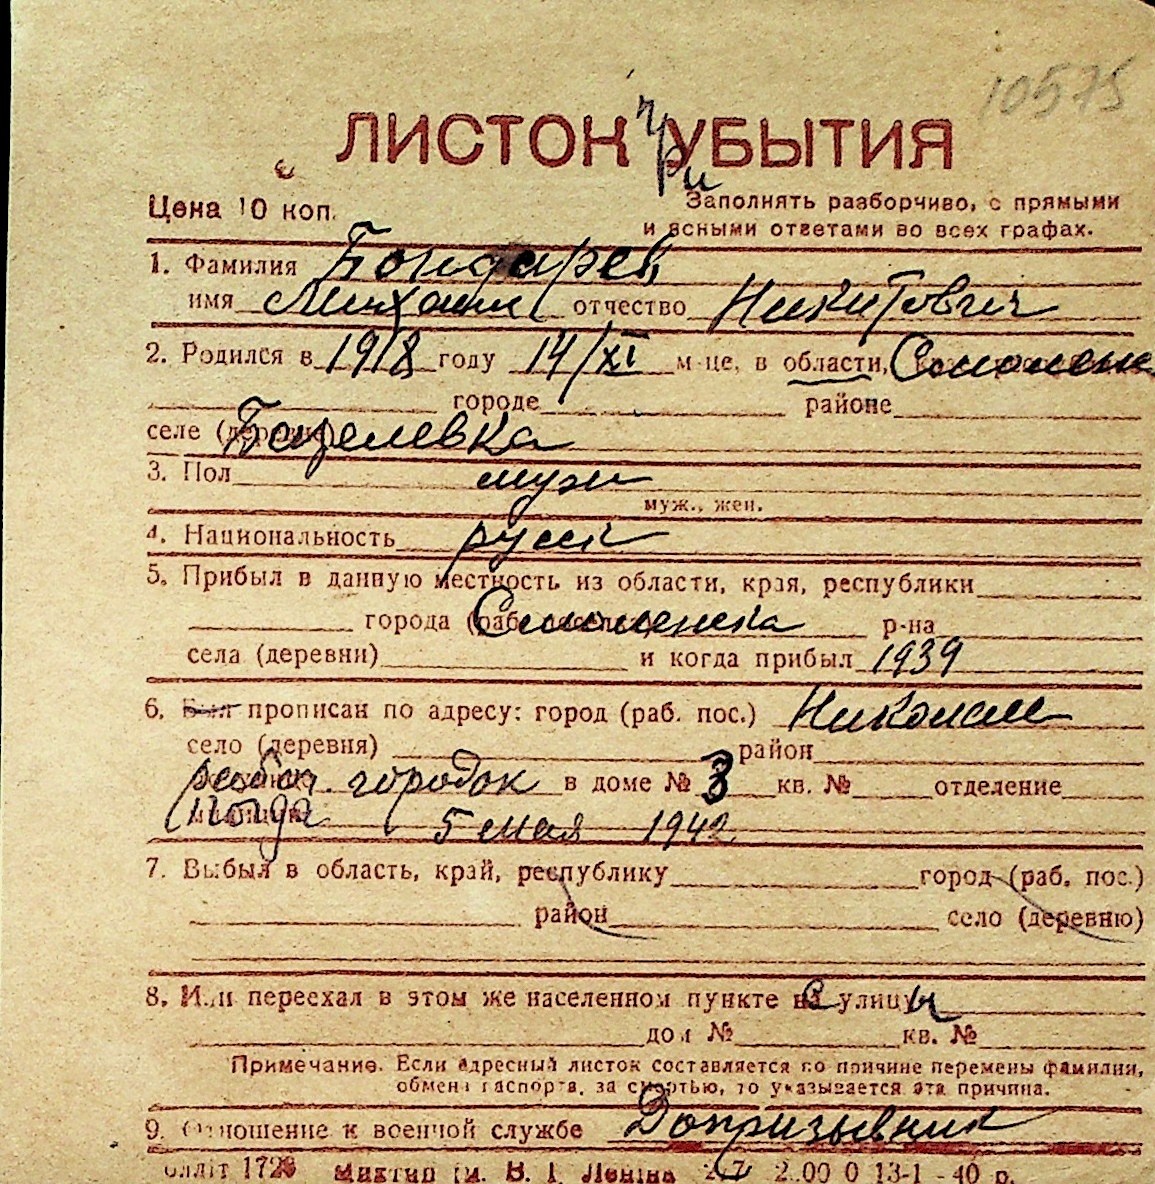 10575
ЛИСТОК при УБЫТИЯ
Цена 10 коп.
Заполнять разборчиво, с прямыми
и ясными ответами во всех графах.
1. Фамилия Бондарев
имя Михаил отчество Никитович
2. Родился в 1918 году 14/XI м-це, в области, Смоленск
городе районе
селе (деревне)
3. Пол муж
муж., жен.
4. Национальность русск
5. Прибыл в данную местность из области, края, республики
города (раб. Смоленска р-на
села (деревни) и когда прибыл 1939
6. Был прописан по адресу: город (раб. пос.) Николаев
село (деревня) район
рабоч. городок в доме № 3 кв. № отделение
5 мая 1942
7. Выбыл в область, край, республику город (раб. пос.)
район село (деревню)
8. Или переехал в этом же населенном пункте с улицы
дом № кв. №
Примечание. Если адресный листок составляется по причине перемены фамилии,
обмена паспорта, за смертью, то указывается эта причина.
9. Отношение к военной службе Допризывник
1720 В. І. Леніна 2.00 0 13-1 - 40 р.